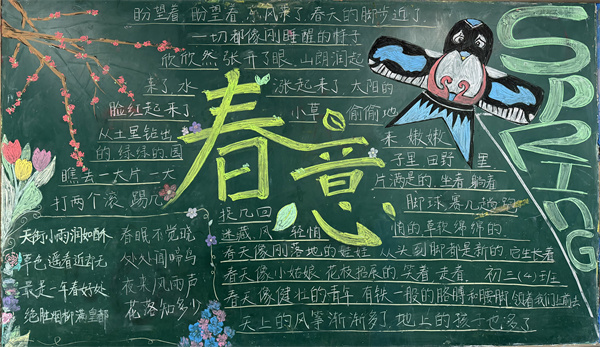 盼望着,盼望着,东风来了,春天的脚步近了
一切都像刚睡醒的样子
欣欣然张开了眼,山朗润起
来了,水 涨起来了,太阳的
脸红起来了 小草 偷偷地
从土里钻出 来,嫩嫩
的,绿绿的,园 子里,田野 里
瞧去,一大片一大 片满是的,坐着,躺着
打两个滚,踢几 脚球,赛几趟跑
捉几回
迷藏,风 轻悄 悄的,草软绵绵的
春意
SPRING
天街小雨润如酥
草色遥看近却无
最是一年春好处
绝胜烟柳满皇都
春眠不觉晓
处处闻啼鸟
夜来风雨声
花落知多少
春天像刚落地的娃娃,从头到脚都是新的,它生长着
春天像小姑娘,花枝招展的,笑着,走着 初三(4)班
春天像健壮的青年,有铁一般的胳膊和腰脚,领着我们上前去
天上的风筝渐渐多了,地上的孩子也多了